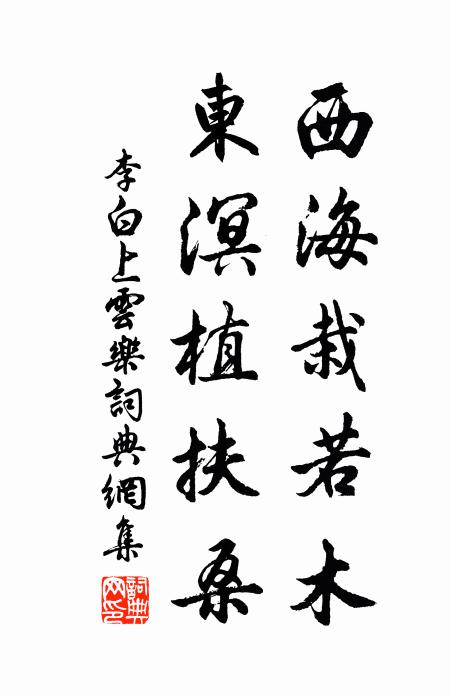 西海栽若木
東溟植扶桑
李白上雲樂詞典網集
詞典網印